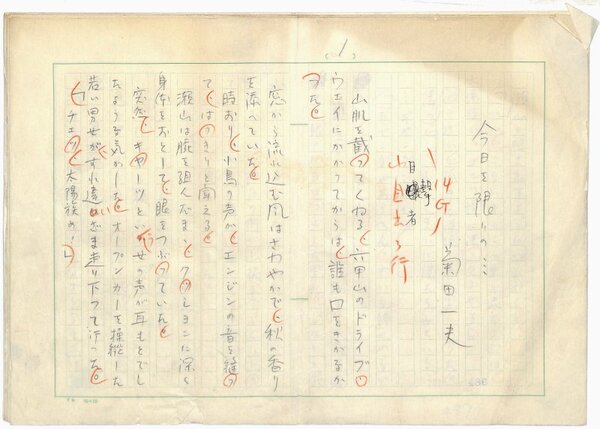 (1)
今日を限りの…
菊田一夫
14G
目撃者
山目出る行
山肌を截ってくねる、六甲山のドライブ・
ウェイにかかってからは、誰も口をきかなか
った。
窓から流れ込む風はさわやかで、秋の香り
を添へていた。
時おり、小鳥の声が、エンジンの音を縫っ
て、はっきりと聞える。
瀬山は腕を組んだまゝ、クッションに深く
身体をおとして、眼をつぶっていた。
突然、キャーッという女の声が耳もとでし
たような気がした。オープンカーを操縦した
若い男女が、すれ違いざま走り下って行った。
「チェッ、太陽族め！」